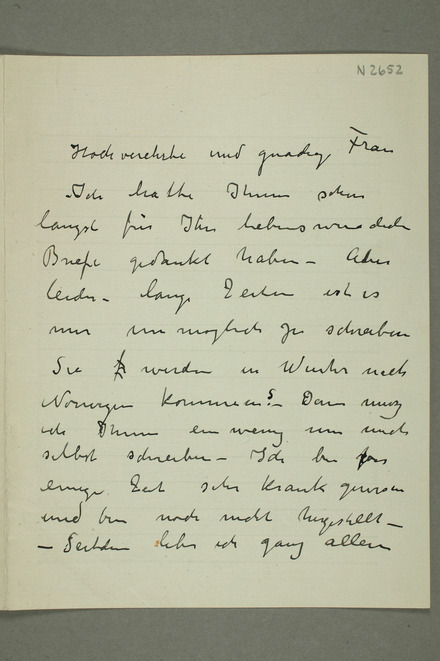 N 2652
Hochverehrte und gnadige Frau
Ich hatte Ihnen schon
langst für Ihre liebenswurdich
Briefe gedankt haben – Aber
leider – lange Zeiten ist es
mir unmoglich zu schreiben
Sie werden im Winter nach
Norwegen kommen? – Dann muss
ich Ihnen ein wenig um mich
selbst schreiben – Ich bin fur
einige Zeit sehr krank gewesen
und bin noch nicht hergestellt –
– Seitdem lebe ich ganz allein